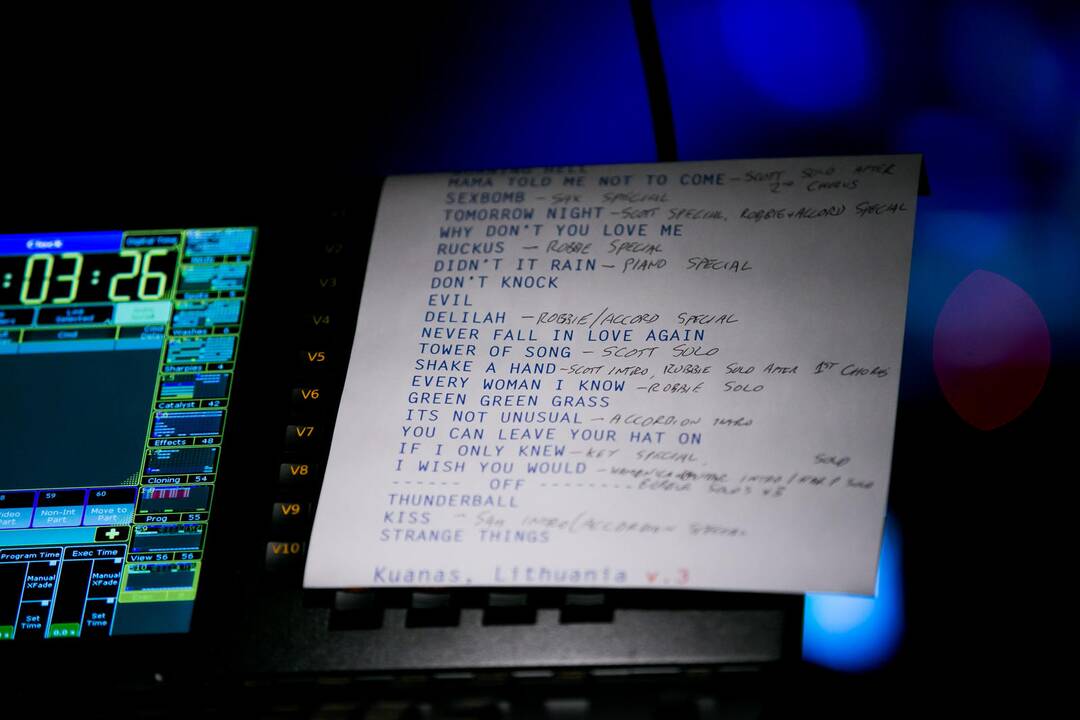 :03:26
Washes 6
Sharpies 4
Catalyst 42
Effects 48
Cloning 54
Prog 55
View 56 56
59
60
Part
Non-Int
Part
Move to
Part
Program Time
Exec Time
Manual
XFade
Manual
XFade
Set
Time
Set
Time
V4
V5
V6
V7
V8
V9
V10
MAMA TOLD ME NOT TO COME - SCOTT SOLO AFTER
2ND CHORUS
SEXBOMB - SAX SPECIAL
TOMORROW NIGHT - SCOTT SPECIAL, ROBBIE + ACCORD SPECIAL
WHY DON'T YOU LOVE ME
RUCKUS - ROBBIE SPECIAL
DIDN'T IT RAIN - PIANO SPECIAL
DON'T KNOCK
EVIL
DELILAH - ROBBIE/ACCORD SPECIAL
NEVER FALL IN LOVE AGAIN
TOWER OF SONG - SCOTT SOLO
SHAKE A HAND - SCOTT INTRO, ROBBIE SOLO AFTER 1ST CHORUS
EVERY WOMAN I KNOW - ROBBIE SOLO
GREEN GREEN GRASS
ITS NOT UNUSUAL - ACCORDION INTRO
YOU CAN LEAVE YOUR HAT ON
IF I ONLY KNEW - KEY SPECIAL
I WISH YOU WOULD - INTRO / SOLO
------ OFF --------
THUNDERBALL
KISS - SAX INTRO/ACCORDION SPECIAL
STRANGE THINGS
Kuanas, Lithuania v.3